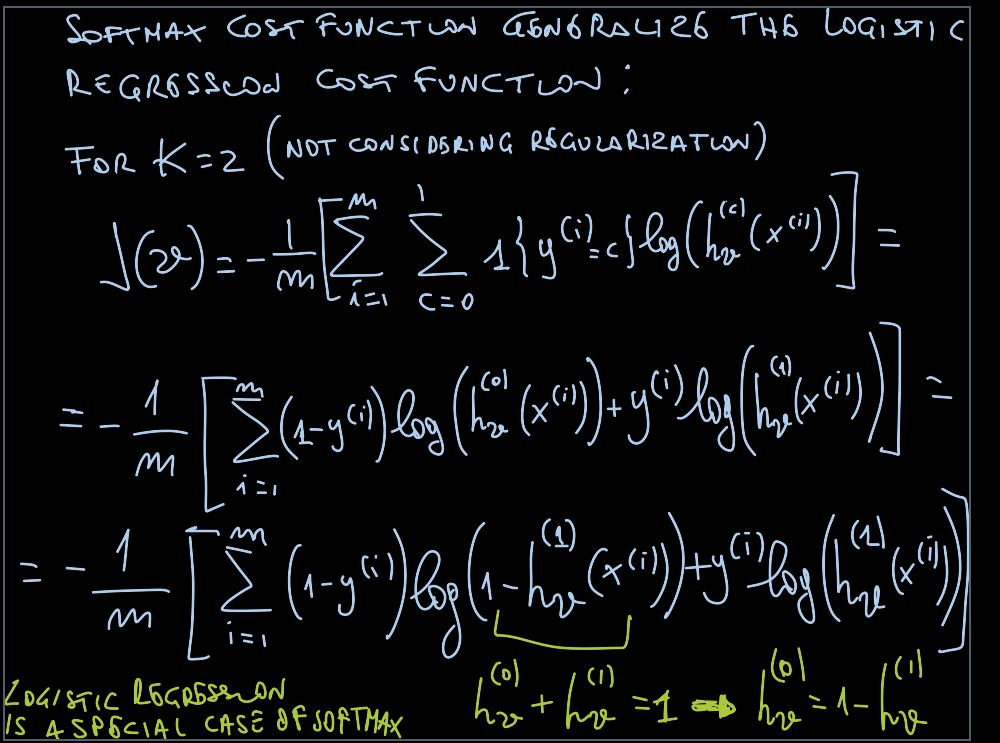 SOFTMAX COST FUNCTION GENERALIZE THE LOGISTIC
REGRESSION COST FUNCTION:
FOR K=2 (NOT CONSIDERING REGULARIZATION)
J(ϑ) = -1/m [∑_{i=1}^{m} ∑_{c=0}^{1} 1{y^{(i)}=c} log(h_ϑ^{(c)}(x^{(i)}))] =
= -1/m [∑_{i=1}^{m} (1-y^{(i)}) log(h_ϑ^{(0)}(x^{(i)})) + y^{(i)} log(h_ϑ^{(1)}(x^{(i)}))] =
= -1/m [∑_{i=1}^{m} (1-y^{(i)}) log(1-h_ϑ^{(1)}(x^{(i)})) + y^{(i)} log(h_ϑ^{(1)}(x^{(i)}))]
h_ϑ^{(0)} + h_ϑ^{(1)} = 1 ⇒ h_ϑ^{(0)} = 1-h_ϑ^{(1)}
LOGISTIC REGRESSION
IS A SPECIAL CASE OF SOFTMAX